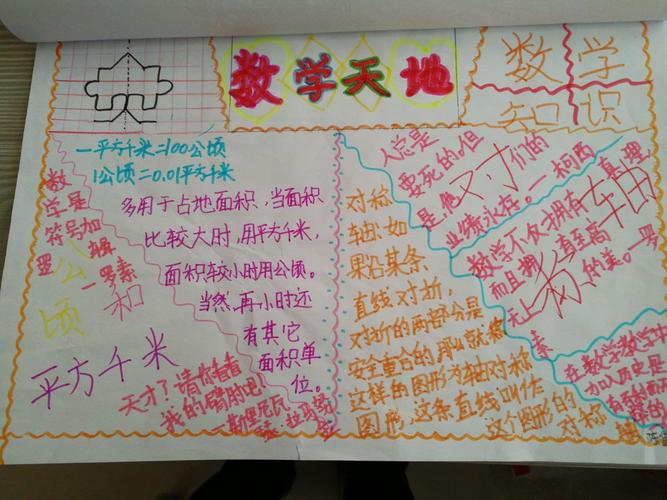 数学天地
数学
知识
一平方千米=100公顷
1公顷=0.01平方千米
数学是
符号加
逻辑
一罗素
公顷
和
平方千米
多用于占地面积,当面积
比较大时,用平方千米,
面积较小时用公顷。
当然,再小时还
有其它
面积单
位。
天才了请你看看
我的臂肋吧!
对称
轴:如
果沿某条
直线对折,
对折的两部分是
完全重合的,那就称
这样的图形为轴对称
图形,这条直线叫作
这个图形的
对称
人总是
要死的,但
是,他们的
业绩永存。一柯西
对称轴
数学不仅拥有真理,
而且拥有至高
无上的美。一罗
素
在数学教学中
加入历史是